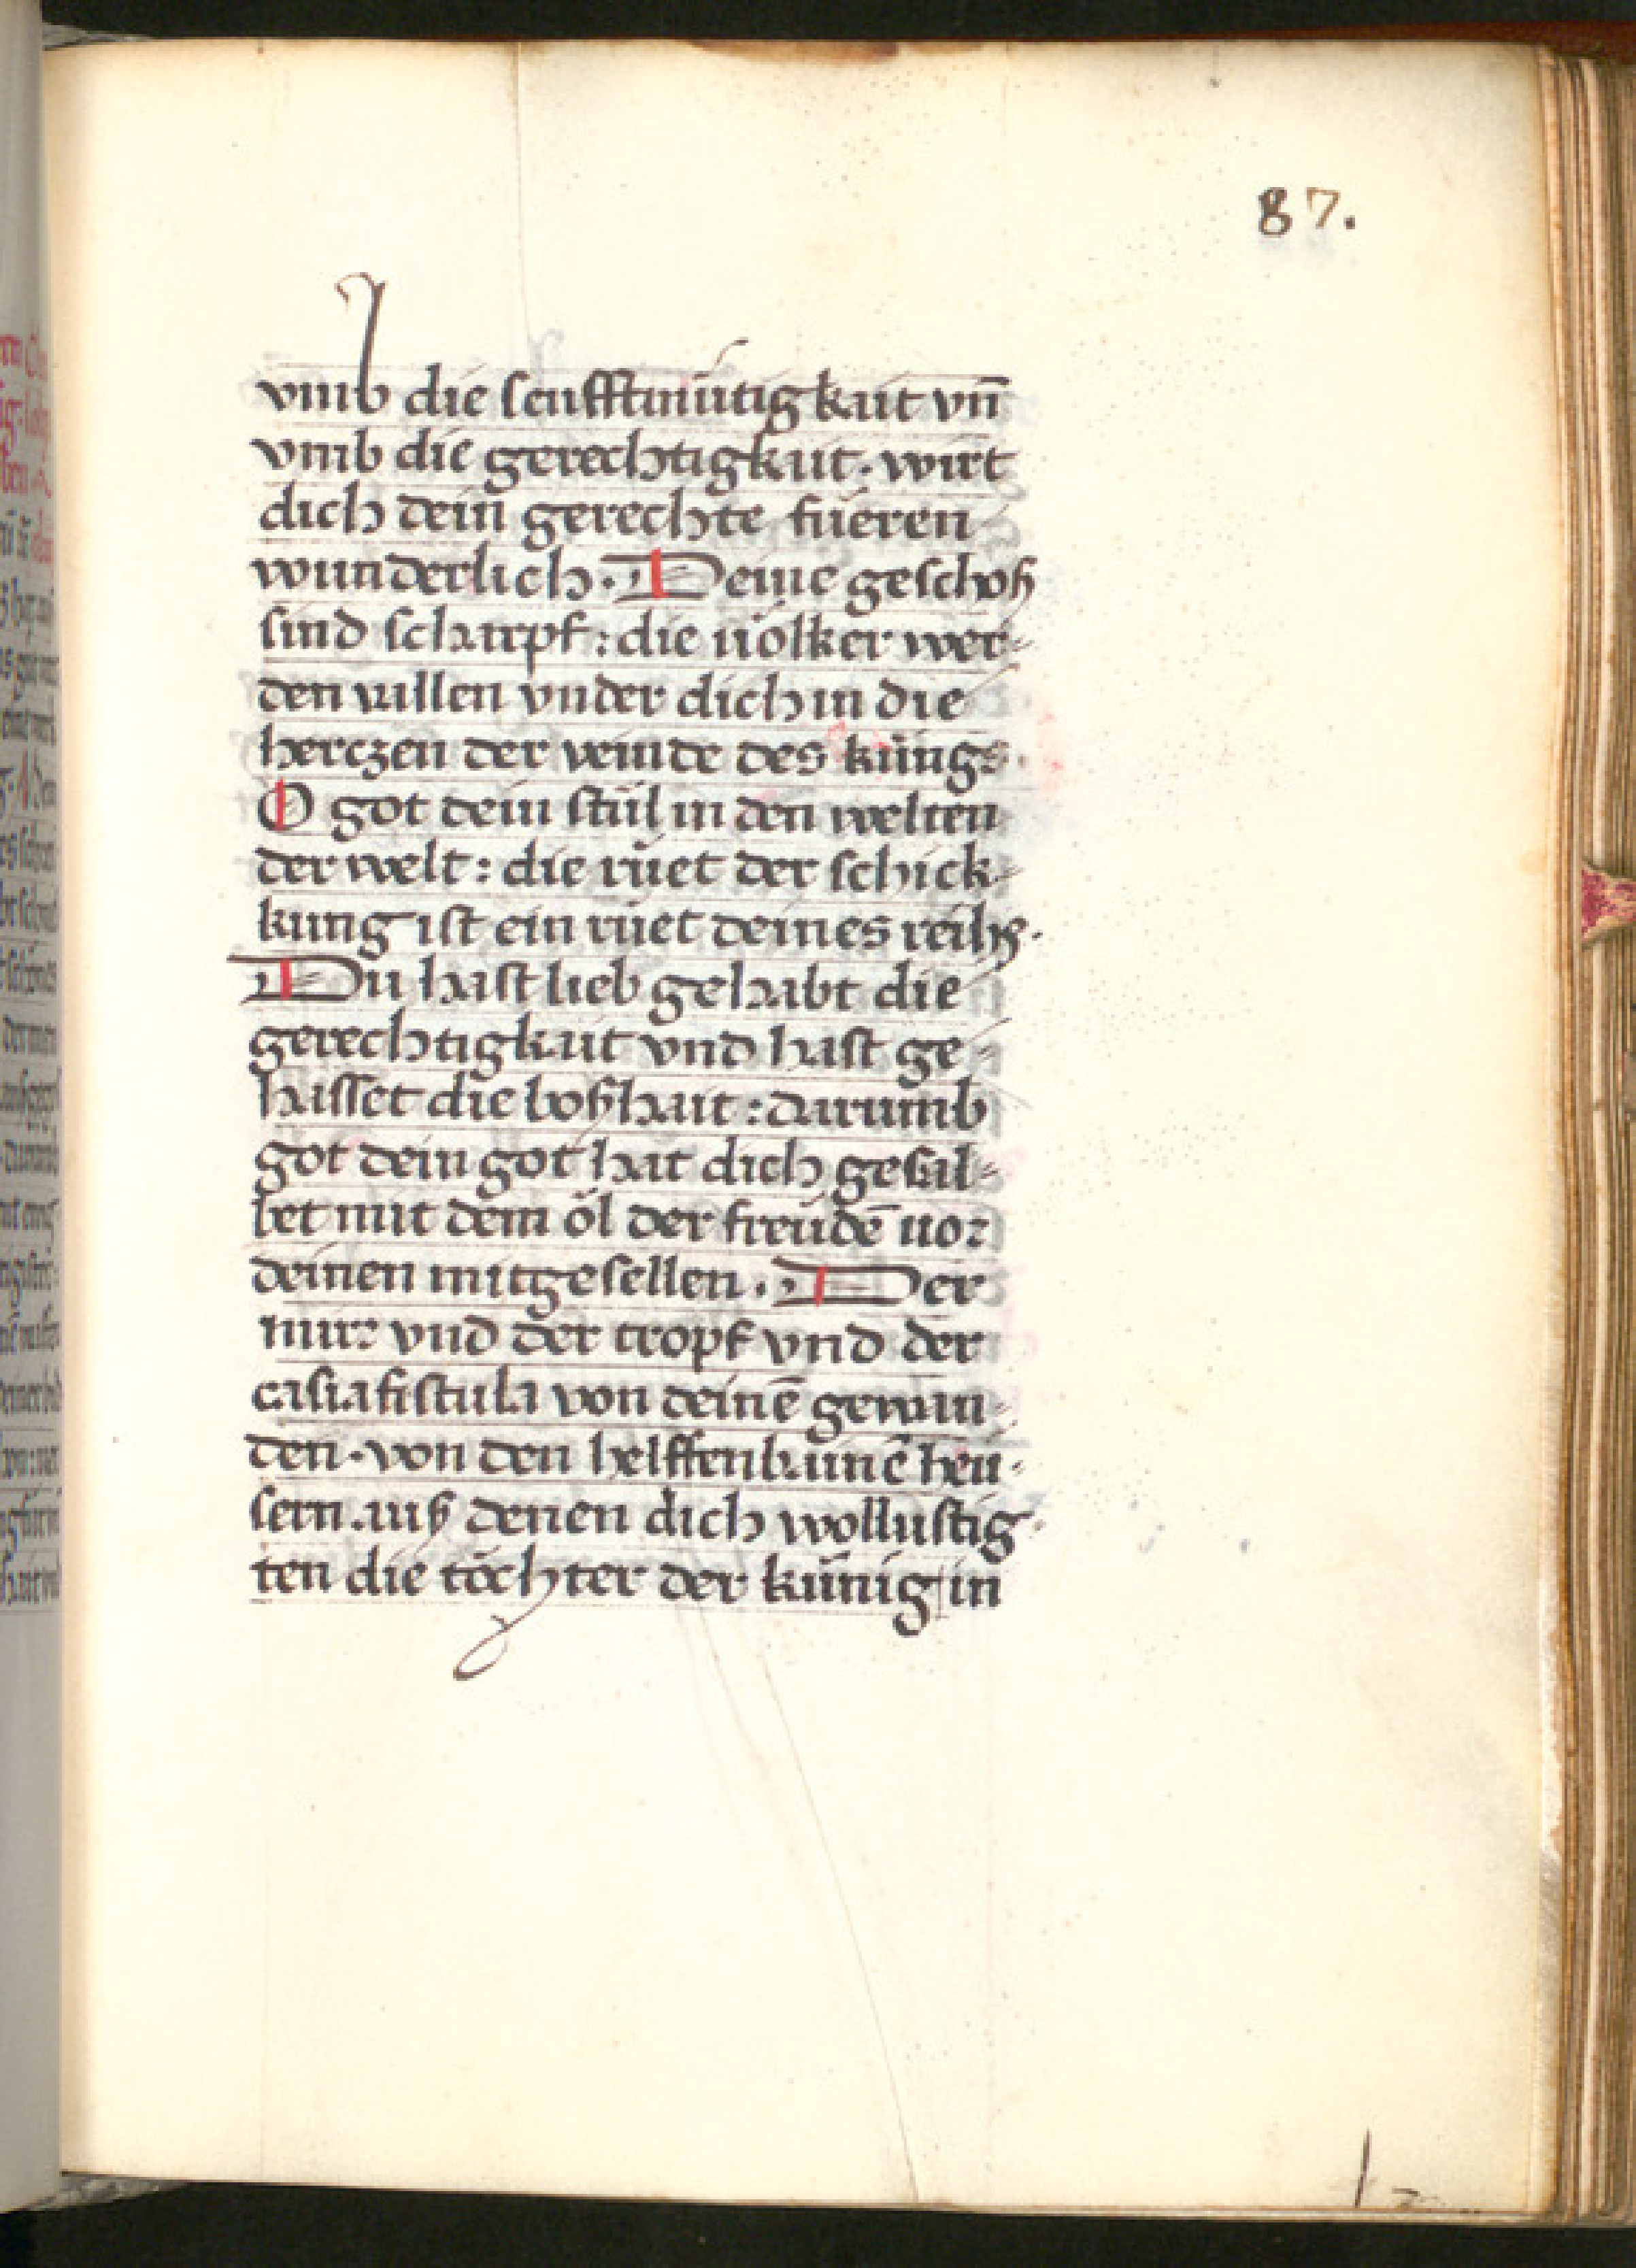 87.
vmb die senfftmütigkait vn̄
vmb die gerechtigkait. wirt
dich dein gerechte füeren
wunderlich. Deine geschoß
sind scharpf: die uölker wer-
den vallen vnder dich in die
herczen der veinde des künigs.
O got dein stůl in den welten
der welt: die růet der schick-
kung ist ein růet deines reichs.
Du hast lieb gehabt die
gerechtigkait vnd hast ge-
hasset die boßhait: darumb
got dein got hat dich gesal-
bet mit dem öl der freudē uor
deinen mitgesellen. Der
mirr vnd der tropf vnd der
casiafistula von deinē gewan-
den. von den helffenbainē heu-
sern. auß denen dich wollustig-
ten die töchter der künig in